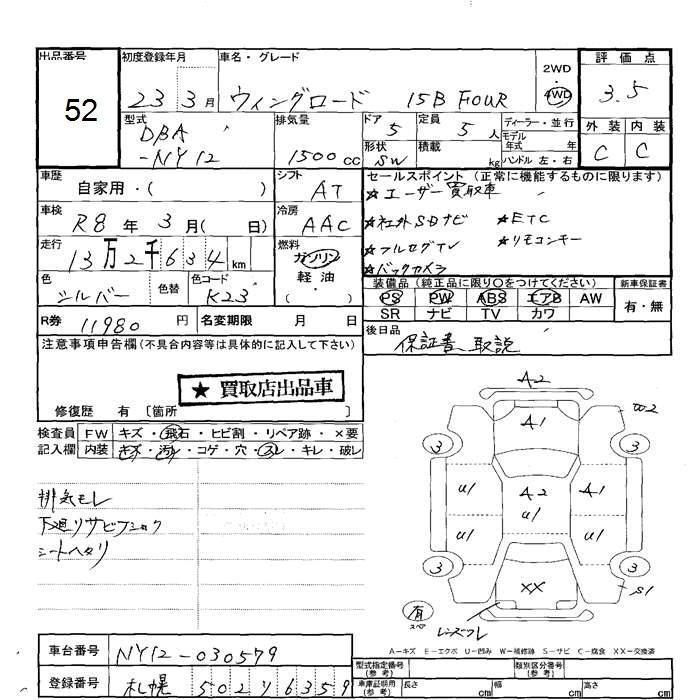 出品番号
52
初度登録年月
23 3月
車名・グレード
ウィングロード 15B FOUR
2WD
4WD
評価点
3.5
外装 内装
C C
型式
DBA
-NY12
排気量
1500cc
ドア 5
定員 5人
形状 SW
積載 kg
ディーラー・並行
モデル年式 年
ハンドル 左・右
車歴
自家用・( )
シフト
AT
セールスポイント (正常に機能するものに限ります)
★ユーザー買取車
★社外SDナビ ★ETC
★フルセグTV ★リモコンキー
★バックカメラ
車検
R8年 3月( 日)
冷房
AAC
走行
13万2千634km
燃料
ガソリン
軽油・
( )
色
シルバー
色替
色コード
K23
装備品 (純正品に限り〇をつけてください)
PS PW ABS エアB AW
SR ナビ TV カワ
新車保証書
有・無
R券 11980円
名変期限 月 日
後日品
保証書 取説
注意事項申告欄(不具合内容等は具体的に記入して下さい)
★ 買取店出品車
修復歴 有〔箇所
検査員記入欄
FW キズ・飛石・ヒビ割・リペア跡・×要
内装 キズ・汚レ・コゲ・穴・スレ・キレ・破レ
排気モレ
下廻リサビフショク
シートヘタリ
A2
A1
W2
3 3
U1 A2 A1
U1
U1 U1
3 3
XX
S1
有
スペア
レンズワレ
A−キズ E−エクボ U−凹み W−補修跡 S−サビ C−腐食 XX−交換済
車台番号 NY12-030579
登録番号 札幌 502 リ 6359
型式指定番号(参考)
類別区分番号(参考)
車庫証明用(参考) 長さ cm 幅 cm 高さ cm